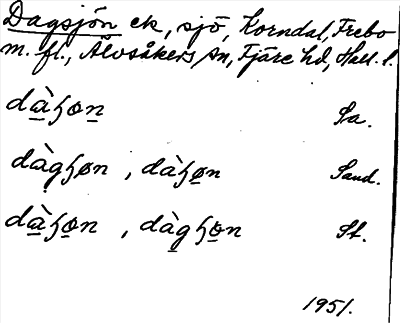 Dagsjön ek, sjö, Korndal, Frebo
m. fl., Älvsåkers sn, Fjäre hd, Hall. l.
dàɧon Sa.
dàgɧøn , dàɧøn Sand.
dàɧon , dàgɧön St.
1951.